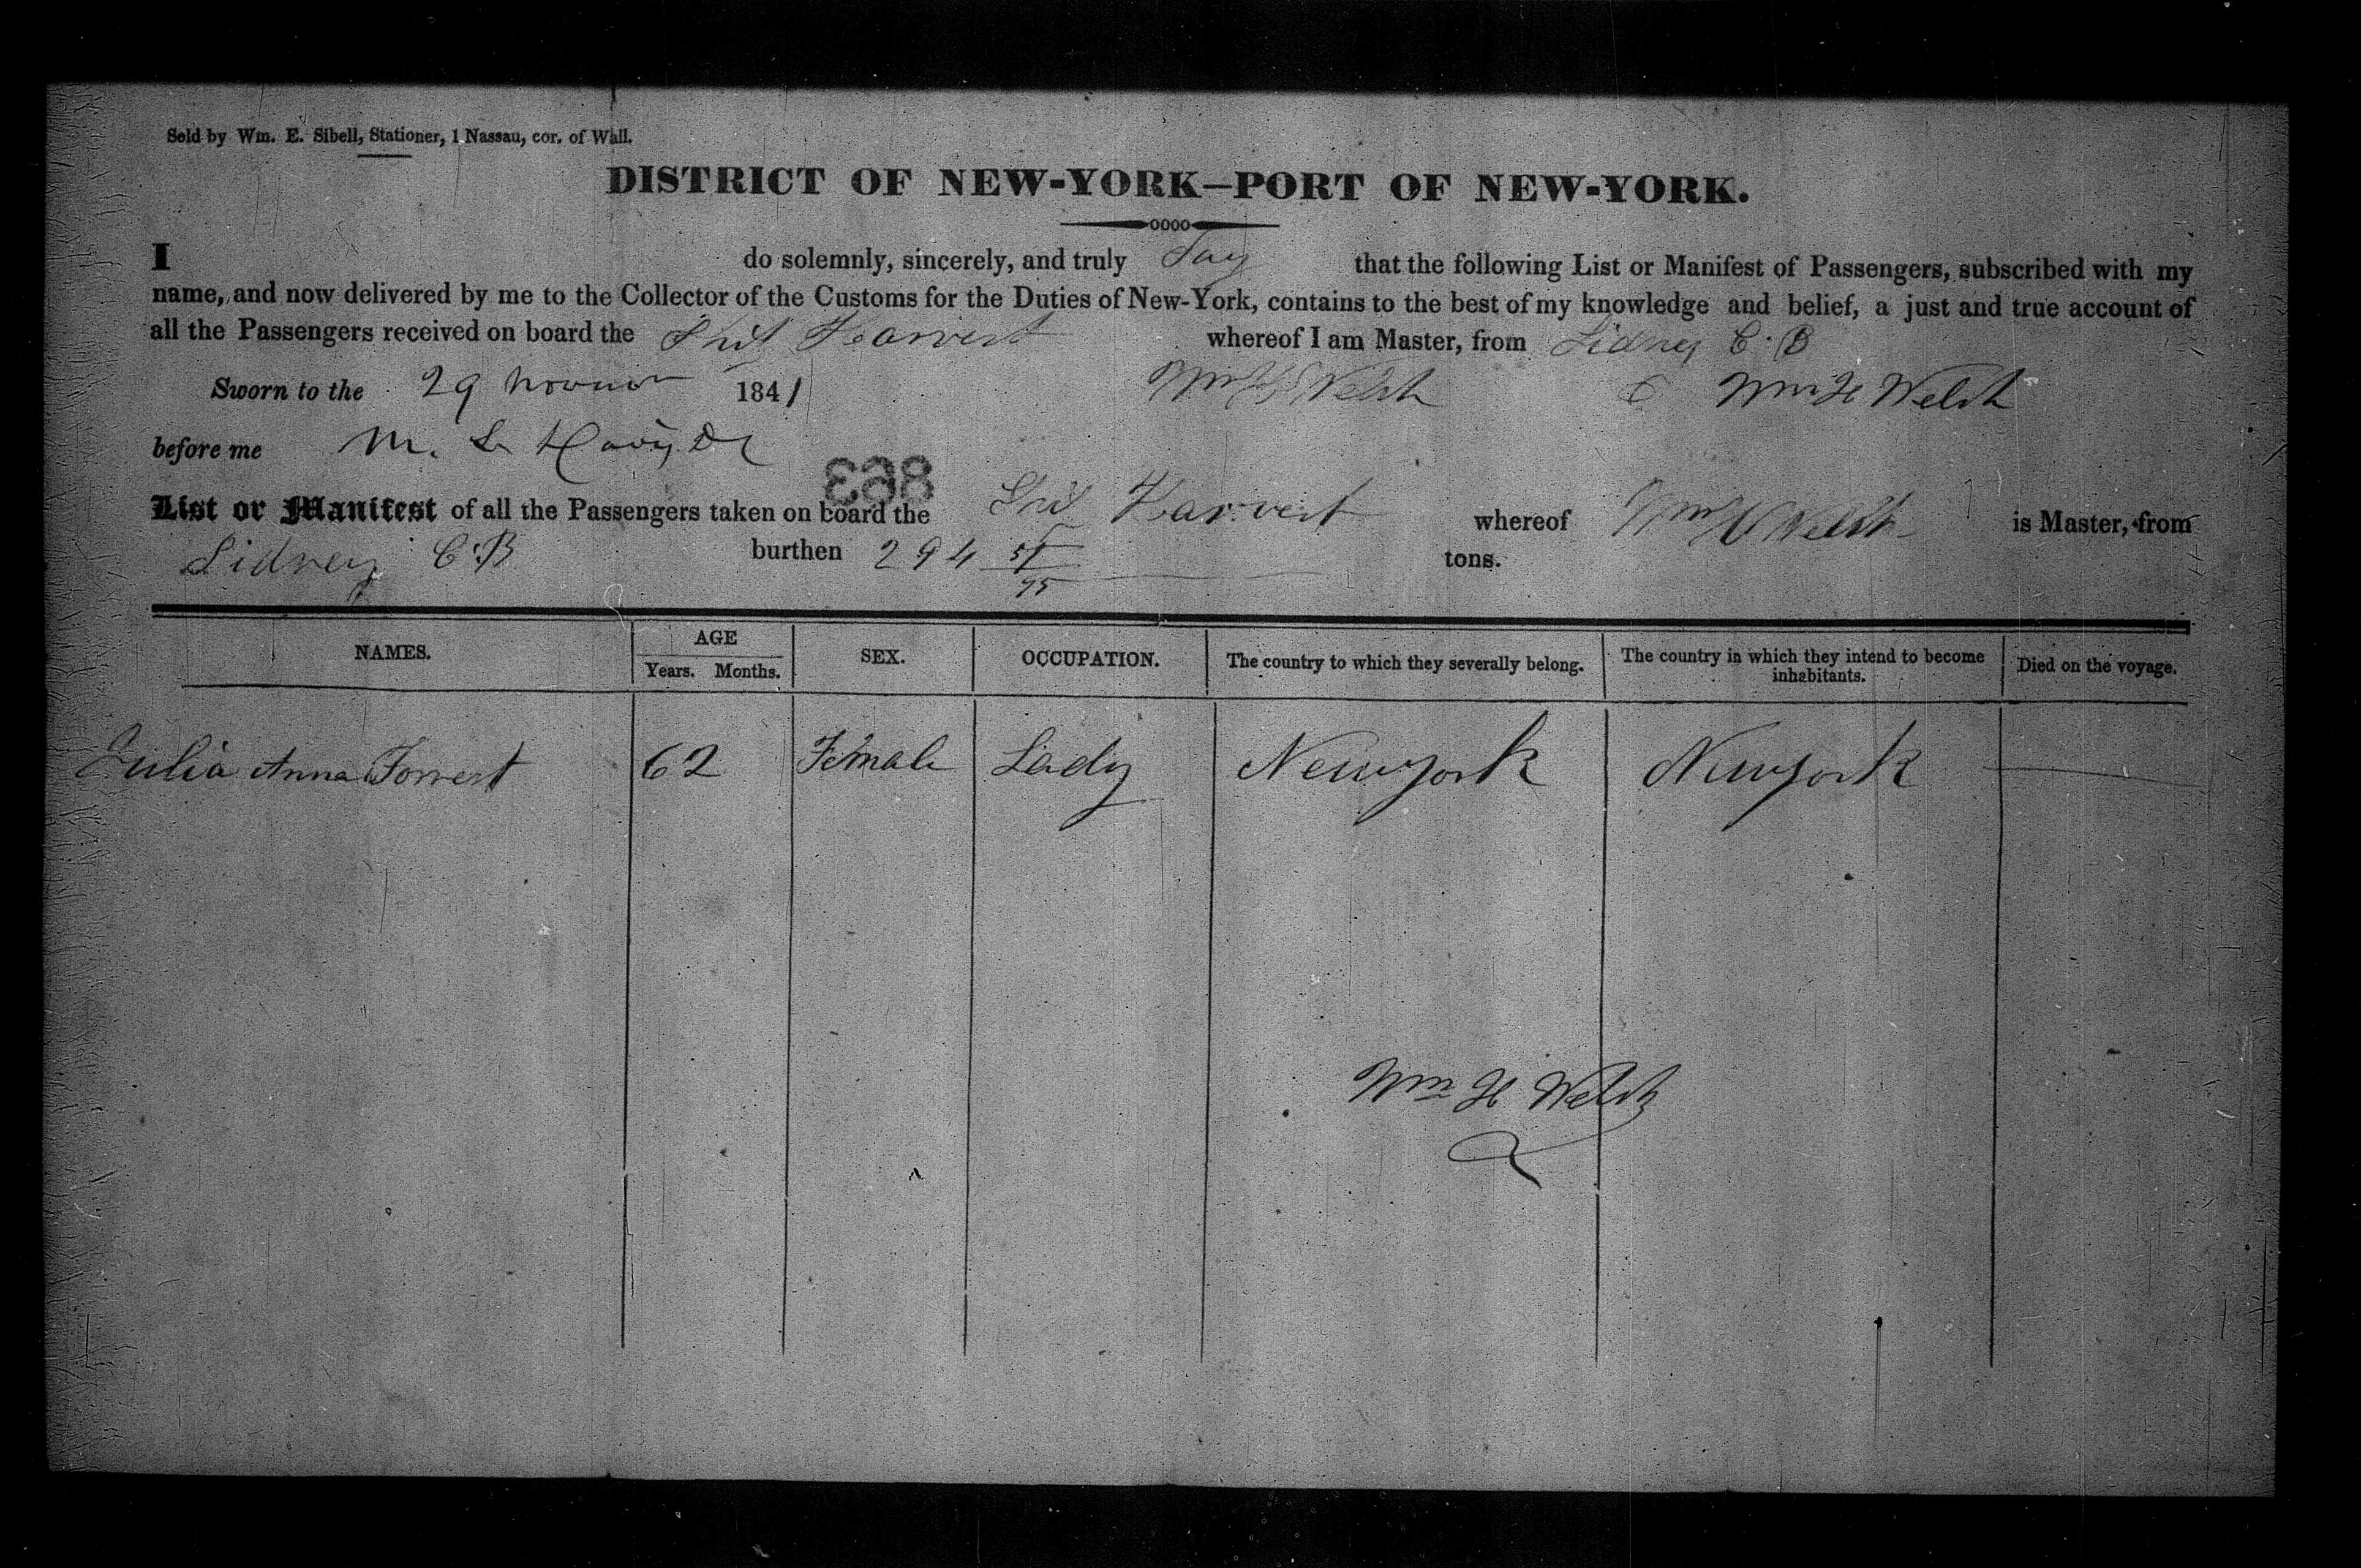 Sold by Wm. E. Sibell, Stationer, 1 Nassau, cor. of Wall.
DISTRICT OF NEW-YORK—PORT OF NEW-YORK.
I do solemnly, sincerely, and truly Say that the following List or Manifest of Passengers, subscribed with my
name, and now delivered by me to the Collector of the Customs for the Duties of New-York, contains to the best of my knowledge and belief, a just and true account of
all the Passengers received on board the Harvest whereof I am Master, from Sidney C.B
Sworn to the 29 1841 Wm H Welsh Wm H Welsh
before me M.
863
List or Manifest of all the Passengers taken on board the Harvest whereof Wm H Welsh is Master, from
Sidney C.B burthen 294 tons.
95
NAMES. AGE Years. Months. SEX. OCCUPATION. The country to which they severally belong. The country in which they intend to become inhabitants. Died on the voyage.
Julia Anna Forrest 62 Female Lady Newyork Newyork
Wm H Welsh